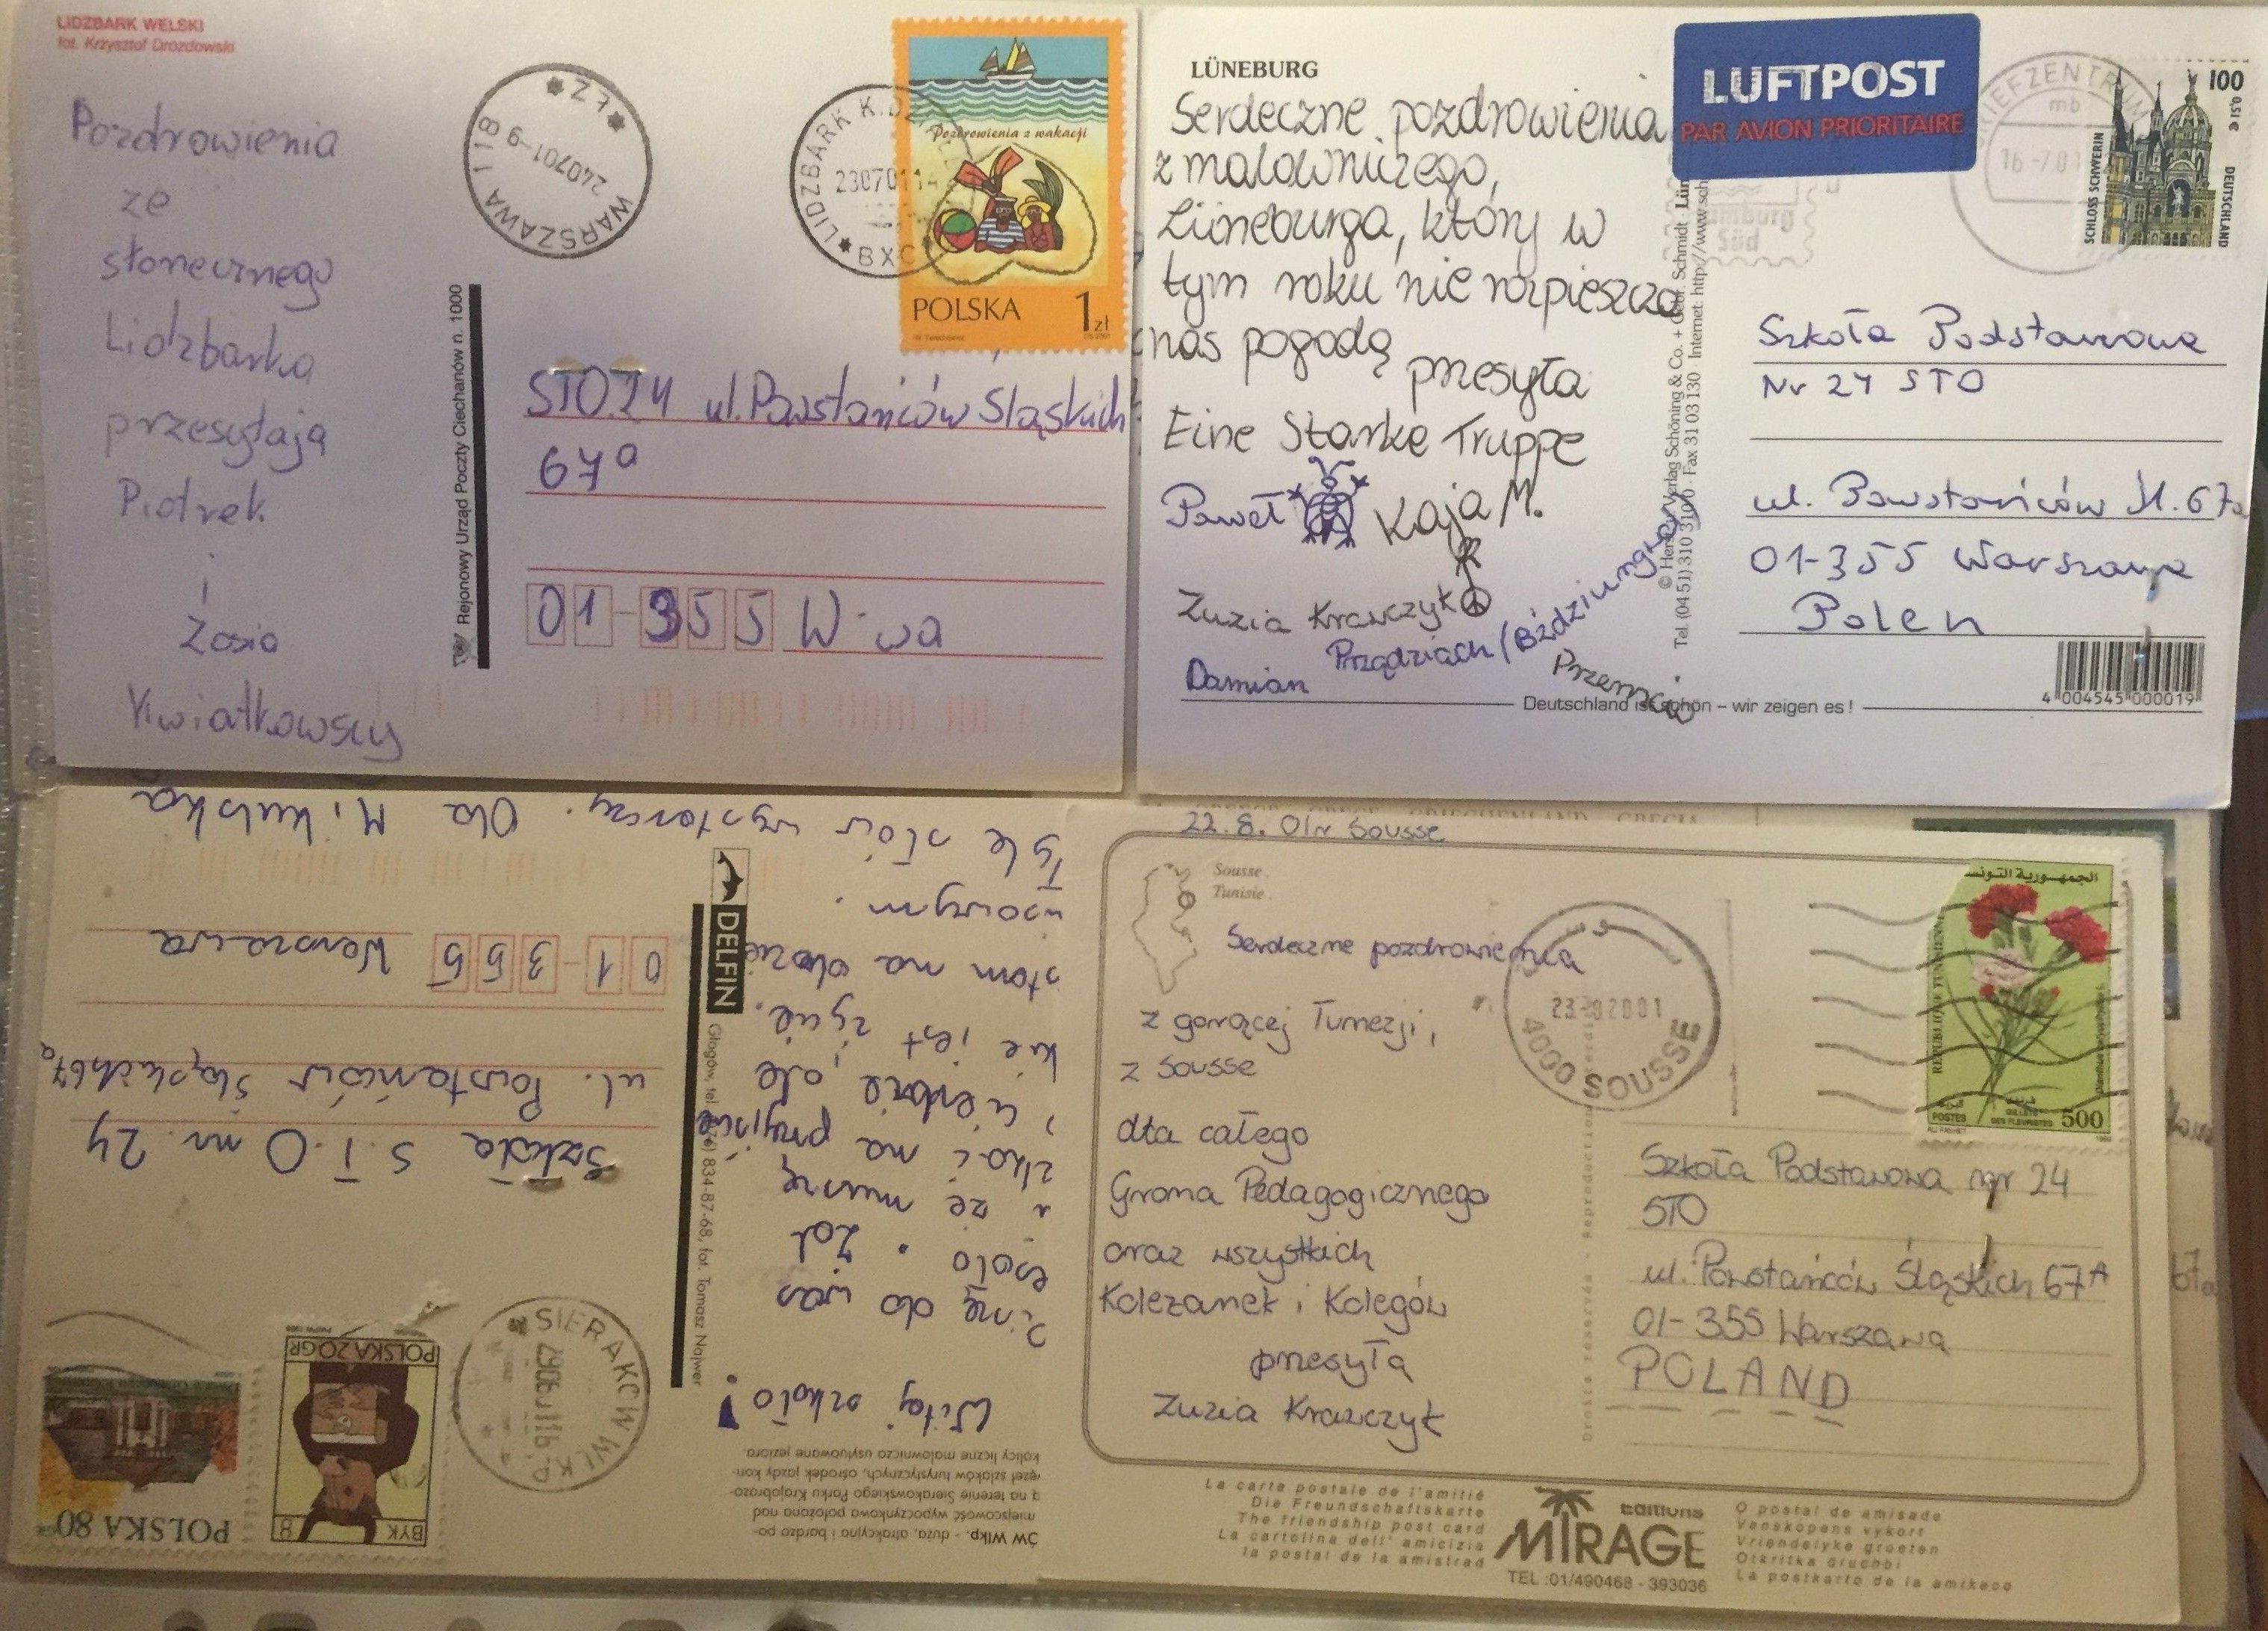 LIDZBARK WELSKI
fot. Krzysztof Drozdowski
Pozdrowienia
ze
słonecznego
Lidzbarka
przesyłają
Piotrek
i
Zosia
Kwiatkowscy
Rejonowy Urząd Poczty Ciechanów n. 1000
WARSZAWA 118
240701-9
ŁZ
LIDZBARK K.DZIAŁD
23070114
BXC
Pozdrowienia z wakacji
POLSKA 1 zł
STO.24 ul.Powstańców Sląskich
67a
01-355 W-wa
LÜNEBURG
Serdeczne pozdrowienia
z malowniczego,
Lüneburga, który w
tym roku nie rozpieszcza
nas pogodą
przesyła
Eine Starke Truppe
Paweł Kaja M.
Zuzia Krawczyk
Prządziach (Bździungwa)
Damian
Przemków
LUFTPOST
PAR AVION PRIORITAIRE
BRIEFZENTRUM
mb
16-7.01
Hamburg
Süd
100
0,51 €
SCHLOSS SCHWERIN
DEUTSCHLAND
Tel. (04 51) 310 310 · Fax 31 03 130 · Internet: http://www.sch
Szkoła Podstawowa
Nr 24 STO
ul. Powstańców Śl. 67a
01-355 Warszawa
Polen
Deutschland ist schön – wir zeigen es!
4 004545 000019
Witaj szkoło!
Piszę do was
esoło. Żal
i że muszę
zkać na przyjście
, ale
kie jest życie.
stam na obozie
wsowym.
Tyle słów wystarczy. Ola Mikulska
ÓW Wlkp. - duża, atrakcyjna i bardzo po-
miejscowość wypoczynkowa położona nad
ą na terenie Sierakowskiego Parku Krajobrazo-
węzeł szlaków turystycznych, ośrodek jazdy kon-
kolicy liczne malowniczo usytuowane jeziora.
DELFIN
Głogów, tel. (076) 834-87-68, fot. Tomasz Najwer
SIERAKÓW WLKP.
POLSKA 20 GR
BYK
8
POLSKA 80
Szkoła S.T.O nr. 24
ul. Powstańców Śląskich 67a
01-355 Warszawa
22.8.01r Sousse
Sousse.
Tunisie.
Serdeczne pozdrowienia
z gorącej Tunezji,
z Sousse
dla całego
Grona Pedagogicznego
oraz wszystkich
Koleżanek i Kolegów
przesyła
Zuzia Krawczyk
4000 SOUSSE
2001
Droits réservés - Reproduction interdite
الجمهورية التونسية
REPUBLIQUE TUNISIENNE
POSTES
500
Szkoła Podstawowa nr 24
STO
ul. Powstańców Śląskich 67A
01-355 Warszawa
POLAND
La carte postale de l'amitié
Die Freundschaftskarte
The friendship post card
La cartolina dell' amicizia
la postal de la amistrad
Editions
MIRAGE
TEL :01/490468 - 393036
O postal de amisade
Venskopens vykort
Vriendelyke groeten
Otkritka druchbi
La postkarto de la amikeco